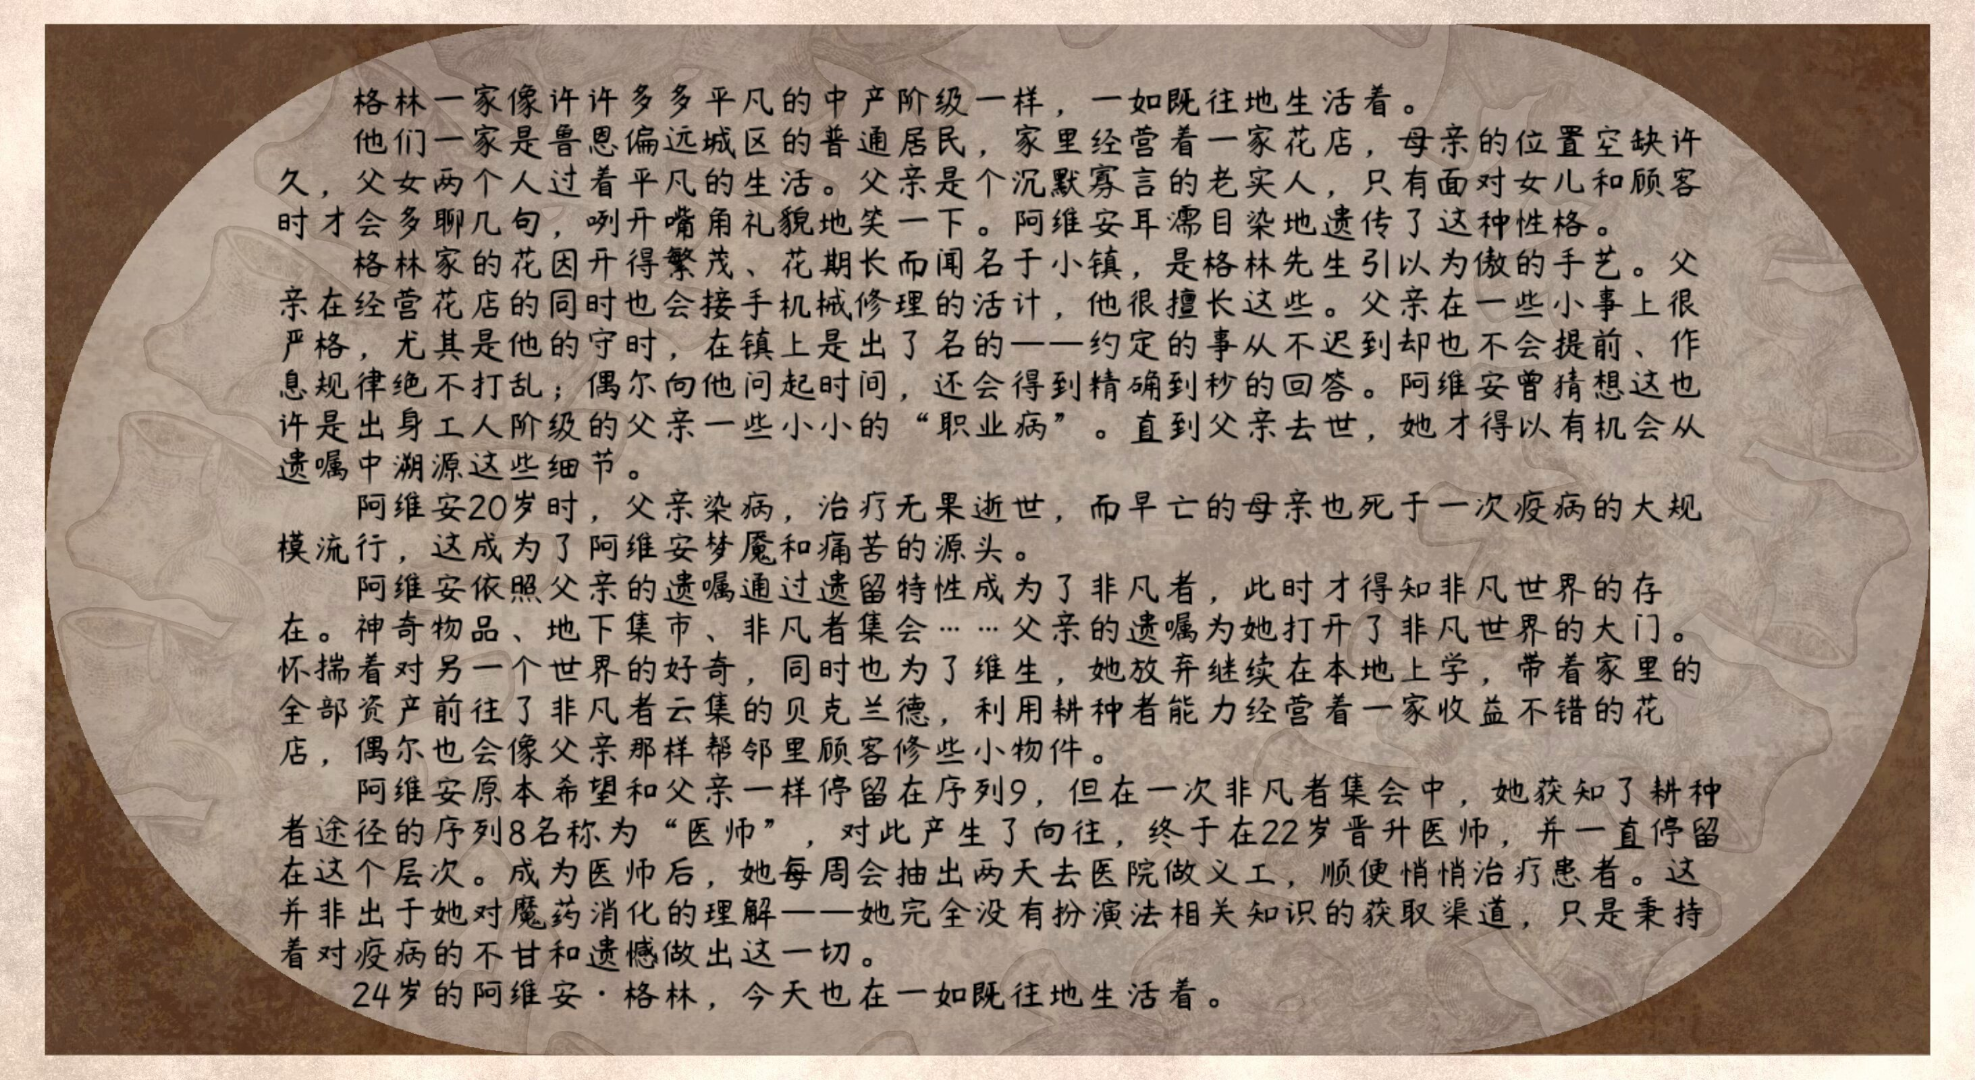 格林一家像许许多多平凡的中产阶级一样，一如既往地生活着。
他们一家是鲁恩偏远城区的普通居民，家里经营着一家花店，母亲的位置空缺许
久，父女两个人过着平凡的生活。父亲是个沉默寡言的老实人，只有面对女儿和顾客
时才会多聊几句，咧开嘴角礼貌地笑一下。阿维安耳濡目染地遗传了这种性格。
格林家的花因开得繁茂、花期长而闻名于小镇，是格林先生引以为傲的手艺。父
亲在经营花店的同时也会接手机械修理的活计，他很擅长这些。父亲在一些小事上很
严格，尤其是他的守时，在镇上是出了名的——约定的事从不迟到却也不会提前、作
息规律绝不打乱；偶尔向他问起时间，还会得到精确到秒的回答。阿维安曾猜想这也
许是出身工人阶级的父亲一些小小的“职业病”。直到父亲去世，她才得以有机会从
遗嘱中溯源这些细节。
阿维安20岁时，父亲染病，治疗无果逝世，而早亡的母亲也死于一次疫病的大规
模流行，这成为了阿维安梦魇和痛苦的源头。
阿维安依照父亲的遗嘱通过遗留特性成为了非凡者，此时才得知非凡世界的存
在。神奇物品、地下集市、非凡者集会……父亲的遗嘱为她打开了非凡世界的大门。
怀揣着对另一个世界的好奇，同时也为了维生，她放弃继续在本地上学，带着家里的
全部资产前往了非凡者云集的贝克兰德，利用耕种者能力经营着一家收益不错的花
店，偶尔也会像父亲那样帮邻里顾客修些小物件。
阿维安原本希望和父亲一样停留在序列9，但在一次非凡者集会中，她获知了耕种
者途径的序列8名称为“医师”，对此产生了向往，终于在22岁晋升医师，并一直停留
在这个层次。成为医师后，她每周会抽出两天去医院做义工，顺便悄悄治疗患者。这
并非出于她对魔药消化的理解——她完全没有扮演法相关知识的获取渠道，只是秉持
着对疫病的不甘和遗憾做出这一切。
24岁的阿维安·格林，今天也在一如既往地生活着。